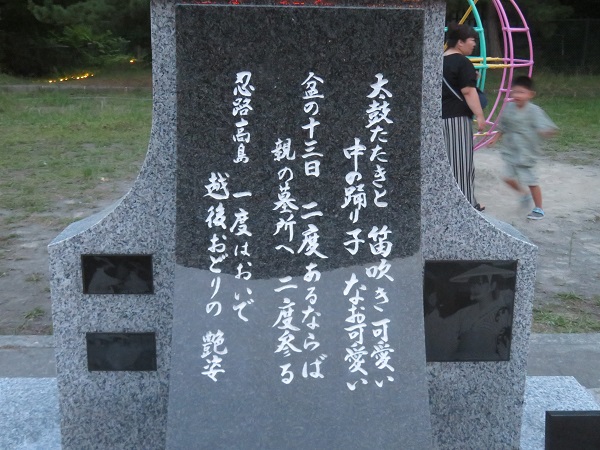 太鼓たたきと 笛吹き可愛い
中の踊り子 なお可愛い
盆の十三日 二度あるならば
親の墓所へ 二度参る
忍路高島 一度はおいで
越後おどりの 艶姿